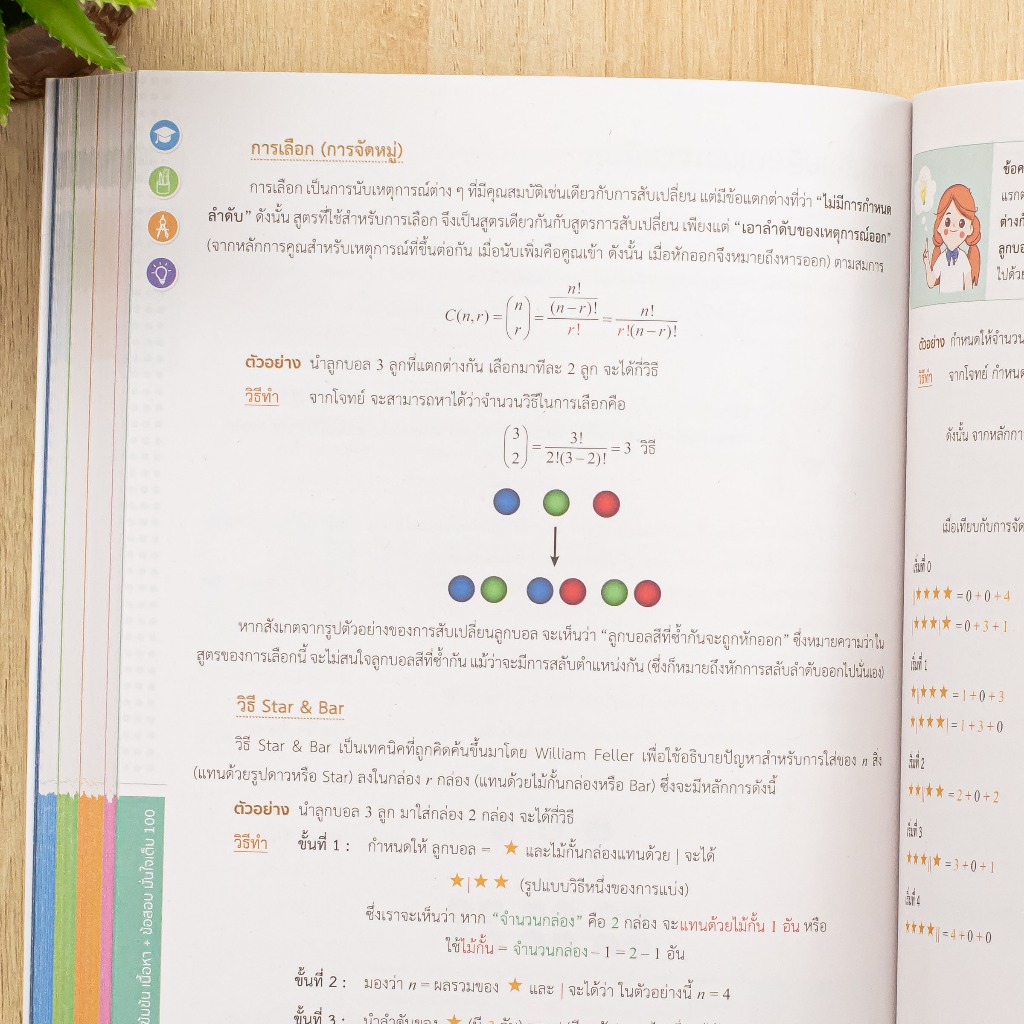 การเลือก (การจัดหมู่)
การเลือก เป็นการนับเหตุการณ์ต่าง ๆ ที่มีคุณสมบัติเช่นเดียวกับการสับเปลี่ยน แต่มีข้อแตกต่างที่ว่า “ไม่มีการกำหนด
ลำดับ” ดังนั้น สูตรที่ใช้สำหรับการเลือก จึงเป็นสูตรเดียวกันกับสูตรการสับเปลี่ยน เพียงแต่ “เอาลำดับของเหตุการณ์ออก”
(จากหลักการคูณสำหรับเหตุการณ์ที่ขึ้นต่อกัน เมื่อนับเพิ่มคือคูณเข้า ดังนั้น เมื่อหักออกจึงหมายถึงหารออก) ตามสมการ
C(n,r) = (n r) = (n!/(n−r)!)/r! = n!/(r!(n−r)!)
ตัวอย่าง นำลูกบอล 3 ลูกที่แตกต่างกัน เลือกมาทีละ 2 ลูก จะได้กี่วิธี
วิธีทำ จากโจทย์ จะสามารถหาได้ว่าจำนวนวิธีในการเลือกคือ
(3 2) = 3!/(2!(3−2)!) = 3 วิธี
หากสังเกตจากรูปตัวอย่างของการสับเปลี่ยนลูกบอล จะเห็นว่า “ลูกบอลสีที่ซ้ำกันจะถูกหักออก” ซึ่งหมายความว่าใน
สูตรของการเลือกนี้ จะไม่สนใจลูกบอลสีที่ซ้ำกัน แม้ว่าจะมีการสลับตำแหน่งกัน (ซึ่งก็หมายถึงหักการสลับลำดับออกไปนั่นเอง)
วิธี Star & Bar
วิธี Star & Bar เป็นเทคนิคที่ถูกคิดค้นขึ้นมาโดย William Feller เพื่อใช้อธิบายปัญหาสำหรับการใส่ของ n สิ่ง
(แทนด้วยรูปดาวหรือ Star) ลงในกล่อง r กล่อง (แทนด้วยไม้กั้นกล่องหรือ Bar) ซึ่งจะมีหลักการดังนี้
ตัวอย่าง นำลูกบอล 3 ลูก มาใส่กล่อง 2 กล่อง จะได้กี่วิธี
วิธีทำ ขั้นที่ 1 : กำหนดให้ ลูกบอล = ★ และไม้กั้นกล่องแทนด้วย | จะได้
★|★★ (รูปแบบวิธีหนึ่งของการแบ่ง)
ซึ่งเราจะเห็นว่า หาก “จำนวนกล่อง” คือ 2 กล่อง จะแทนด้วยไม้กั้น 1 อัน หรือ
ใช้ไม้กั้น = จำนวนกล่อง – 1 = 2 – 1 อัน
ขั้นที่ 2 : มองว่า n = ผลรวมของ ★ และ | จะได้ว่า ในตัวอย่างนี้ n = 4
ขั้นที่ 3 : นำลำดับของ ★
เนื้อหา + ข้อสอบ มั่นใจเต็ม 100
ตัวอย่าง กำหนดให้จำนวน
วิธีทำ จากโจทย์ กำหนด
ดังนั้น จากหลักกา
เมื่อเทียบกับการจัด
เริ่มที่ 0
||★★★★ = 0 + 0 + 4
|★★★|★ = 0 + 3 + 1
เริ่มที่ 1
★||★★★ = 1 + 0 + 3
★|★★★| = 1 + 3 + 0
เริ่มที่ 2
★★||★★ = 2 + 0 + 2
เริ่มที่ 3
★★★||★ = 3 + 0 + 1
เริ่มที่ 4
★★★★|| = 4 + 0 + 0